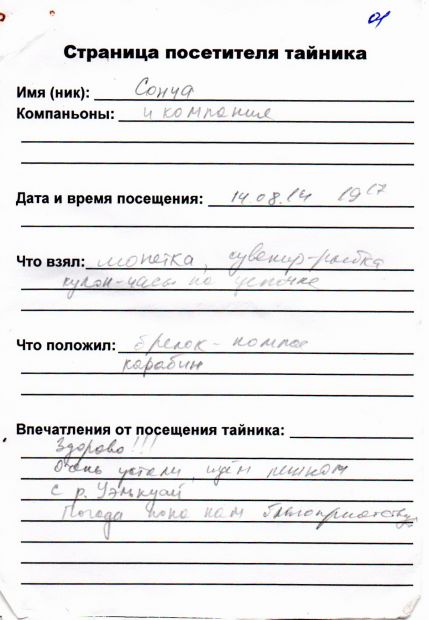 01
Страница посетителя тайника
Имя (ник): Сонча
Компаньоны: и компания
Дата и время посещения: 14.08.14 19 17
Что взял: монетка, сувенир-рыбка
кулон-часы на цепочке
Что положил: брелок - компас
карабин
Впечатления от посещения тайника:
Здорово!!!
Очень устали, идём пешком
с р. Уэмкуай
Погода пока нам благоприятству